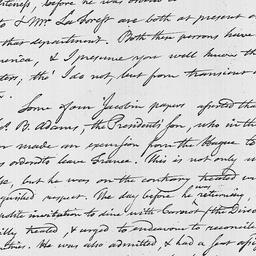 before he was ordered
& Mr. La Forest are both at present
that department. Both these persons have
& I presume you well know the
tho' I do not, but from transient
Some of our Jacobin papers asserted that
B. Adams, the President's son, who in the
made an excursion from the Hague to
ordered to leave France. This is not only
but he was on the contrary treated wi
respect. The day before he was returning,
invitation to dine with Carnot (the Direc
treated, & urged to endeavour to reconcile
He was also admitted, & had a seat assig